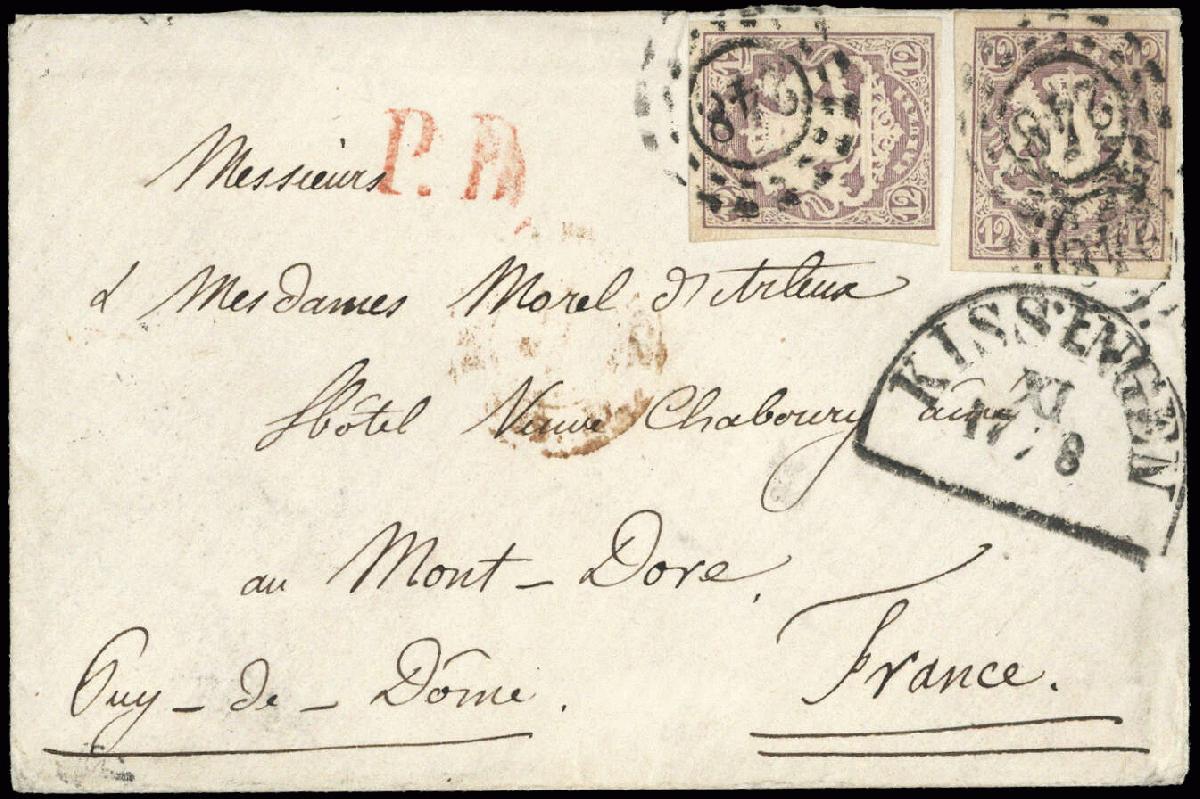 12 12 12 12
248
12 12 12
248
P. D.
Messieurs
& Mesdames Morel d'Arleux
Hôtel Veuve Chaboury aîné
au Mont-Dore.
Puy-de-Dôme.
France.
KISSINGEN
XI
17 / 8